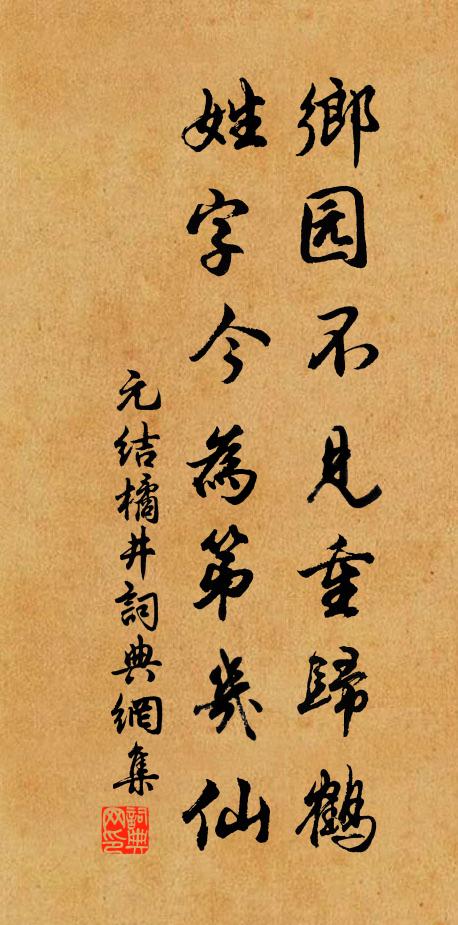 鄉园不見重歸鶴
姓字今為第幾仙
元结橘井詞典網集
詞典网印